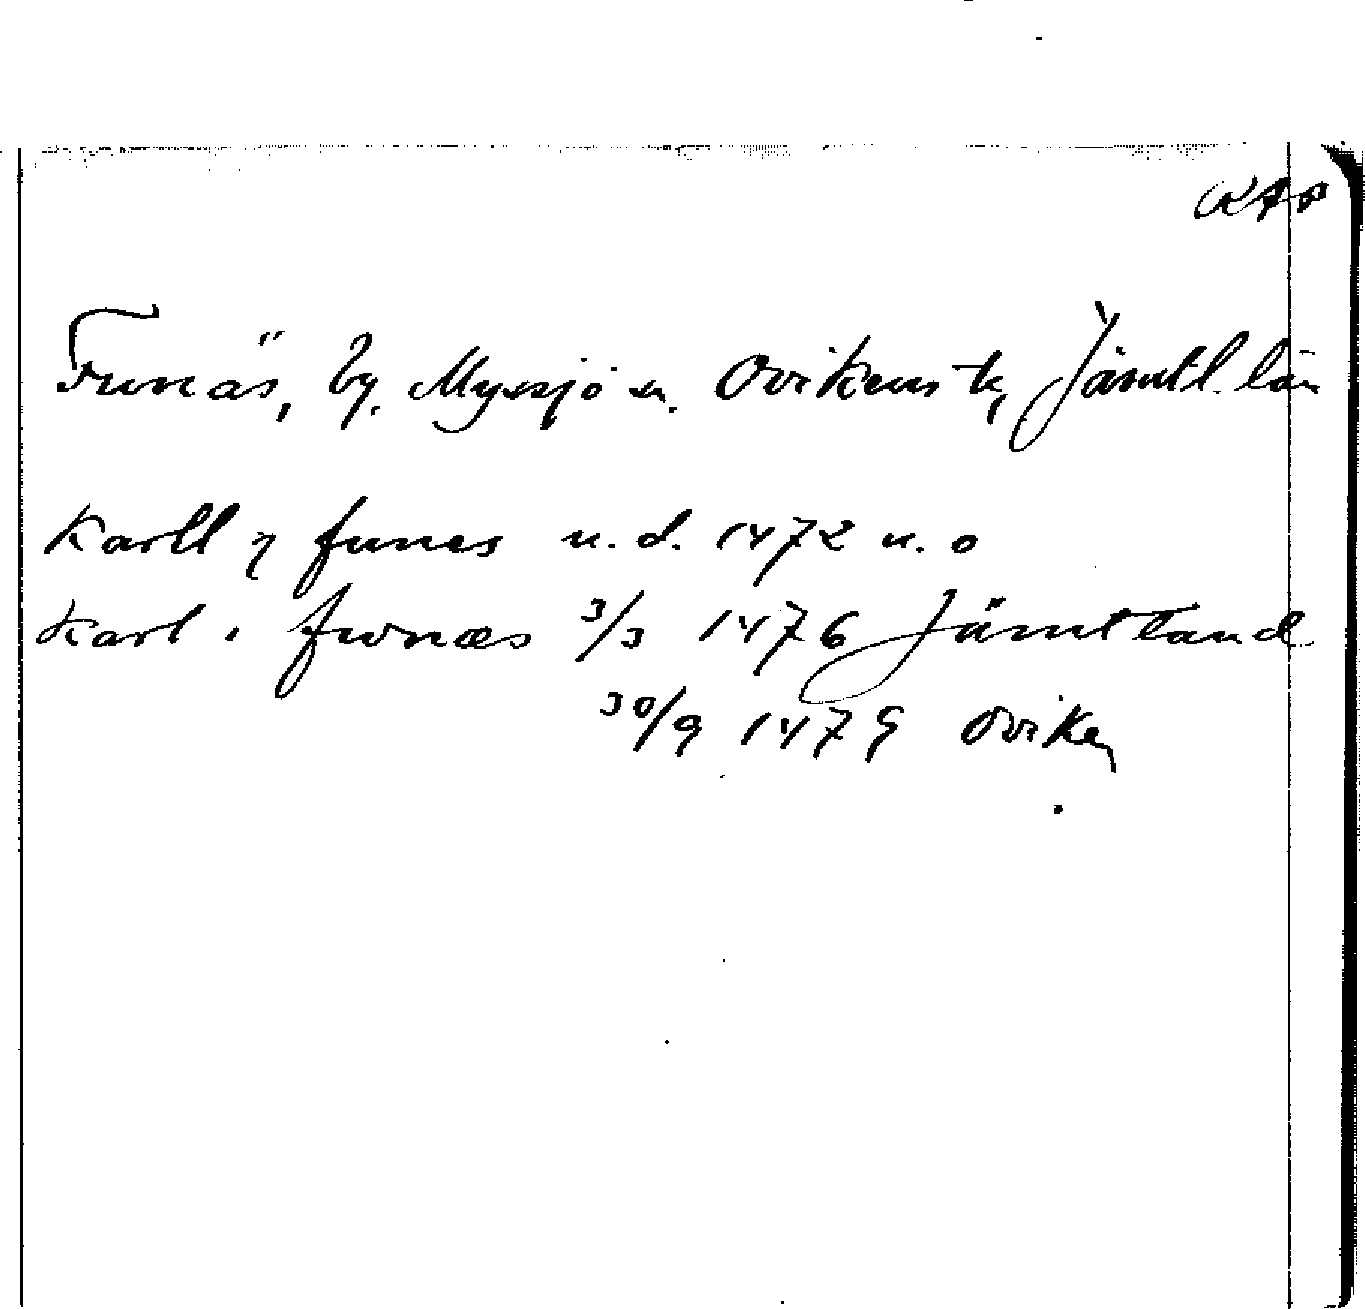 Funäs, by, Myssjö sn. Ovikens tg, Jämtl. län
Karll j funes u.d. 1472 u.o
Karl i funæs 3/3 1476 Jämtland
30/9 1479 Oviken